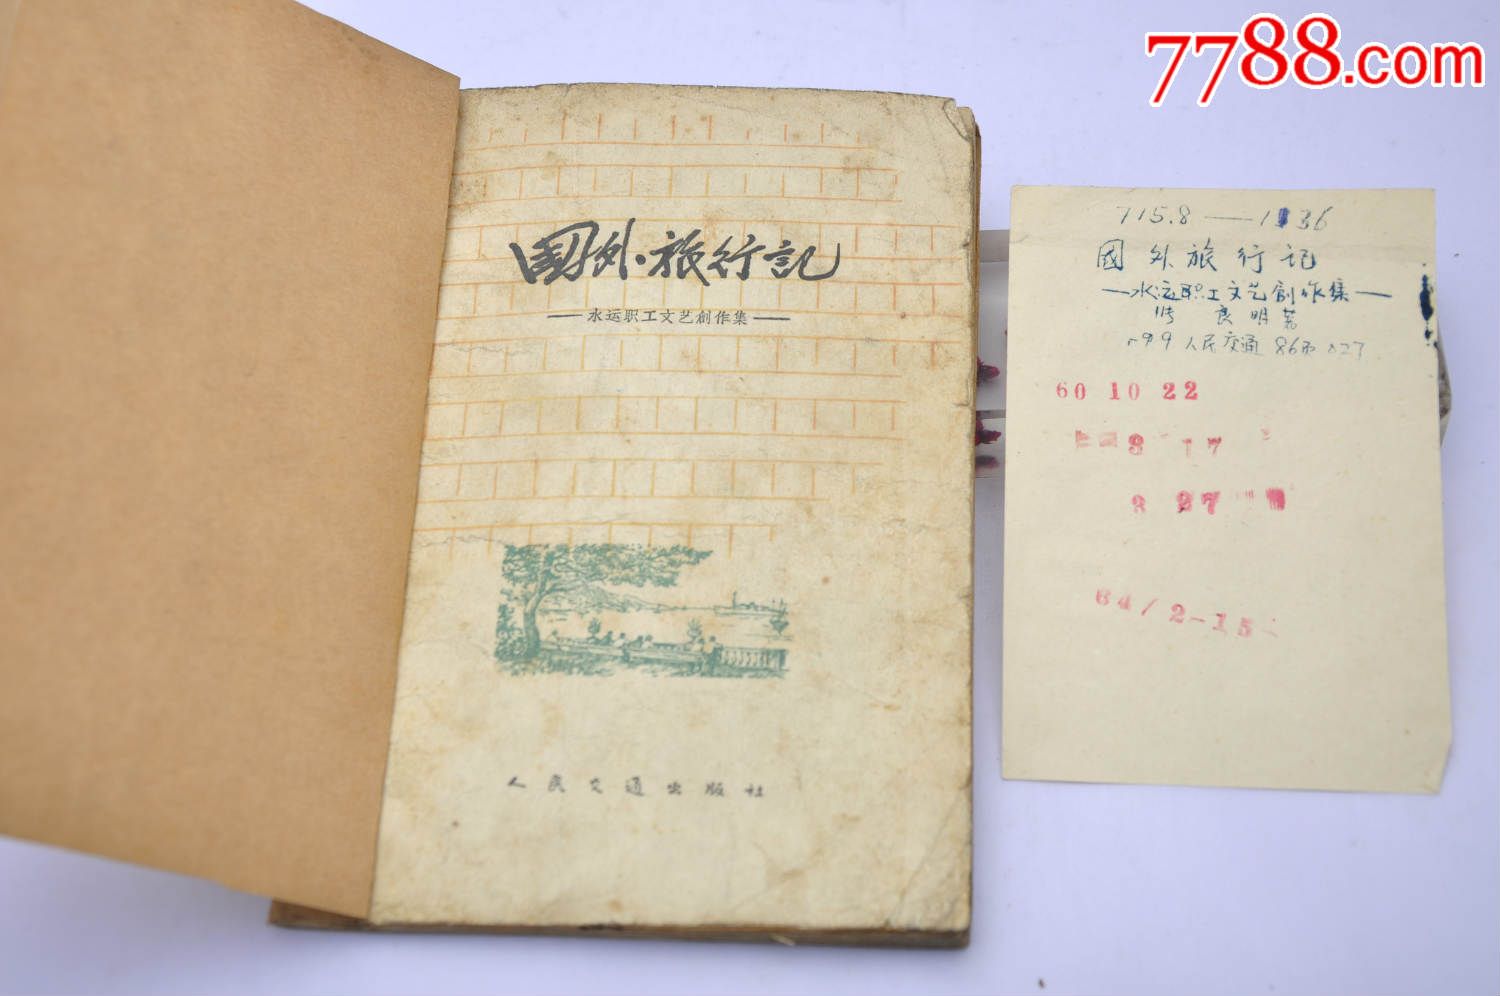 7788.com
国外旅行記
—水运职工文艺創作集—
人民交通出版社
715.8—1136
國外旅行记
—水运职工文艺創作集—
良明著
人民交通
60 10 22
8 17
3 27
64/2-15